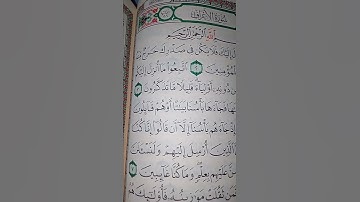 سورة الأعراف
بسم الله الرحمن الرحيم
إليك فلا يكن في صدرك حرج
للمؤمنين ٢ اتبعوا ما أنزل إليكم
من دونه أولياء قليلا ما تذكرون ٣
فجاءها بأسنا بياتا أو هم قائلون
إذ جاءهم بأسنا إلا أن قالوا إنا كنا
الذين أرسل إليهم ولنسئلن
عليهم بعلم وما كنا غائبين ٧
فمن ثقلت موازينه فأولئك هم